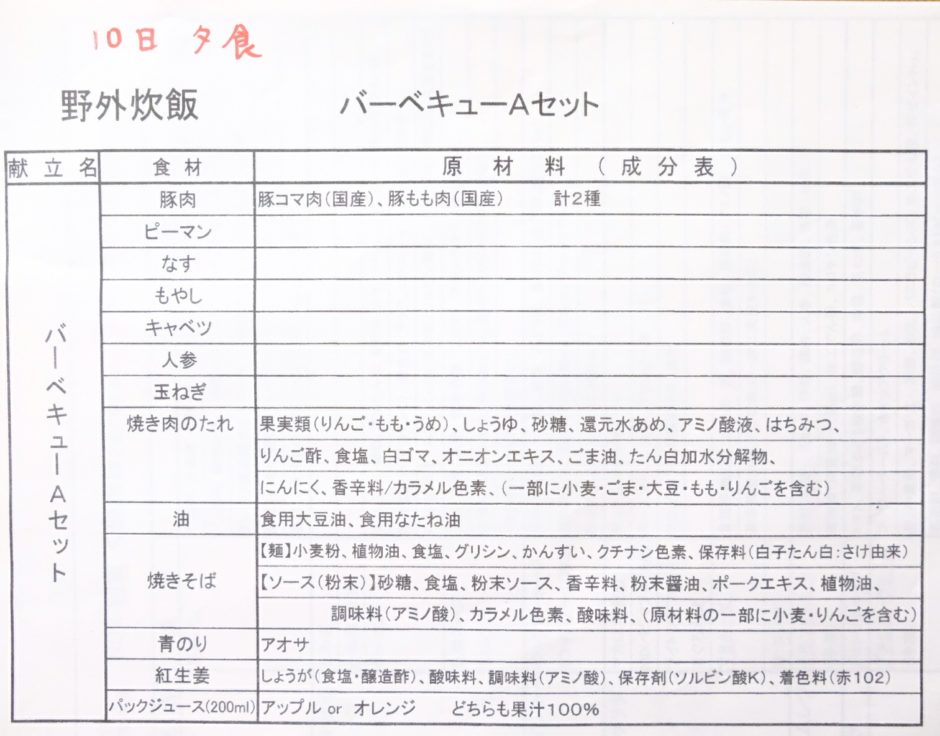 10日 夕食
野外炊飯 バーベキューAセット
献立名 食材 原材料(成分表)
バーベキューAセット
豚肉 豚コマ肉(国産)、豚もも肉(国産) 計2種
ピーマン
なす
もやし
キャベツ
人参
玉ねぎ
焼き肉のたれ 果実類(りんご・もも・うめ)、しょうゆ、砂糖、還元水あめ、アミノ酸液、はちみつ、
りんご酢、食塩、白ゴマ、オニオンエキス、ごま油、たん白加水分解物、
にんにく、香辛料/カラメル色素、(一部に小麦・ごま・大豆・もも・りんごを含む)
油 食用大豆油、食用なたね油
焼きそば 【麺】小麦粉、植物油、食塩、グリシン、かんすい、クチナシ色素、保存料(白子たん白:さけ由来)
【ソース(粉末)】砂糖、食塩、粉末ソース、香辛料、粉末醤油、ポークエキス、植物油、
調味料(アミノ酸)、カラメル色素、酸味料、(原材料の一部に小麦・りんごを含む)
青のり アオサ
紅生姜 しょうが(食塩・醸造酢)、酸味料、調味料(アミノ酸)、保存剤(ソルビン酸K)、着色料(赤102)
パックジュース(200ml) アップル or オレンジ どちらも果汁100%